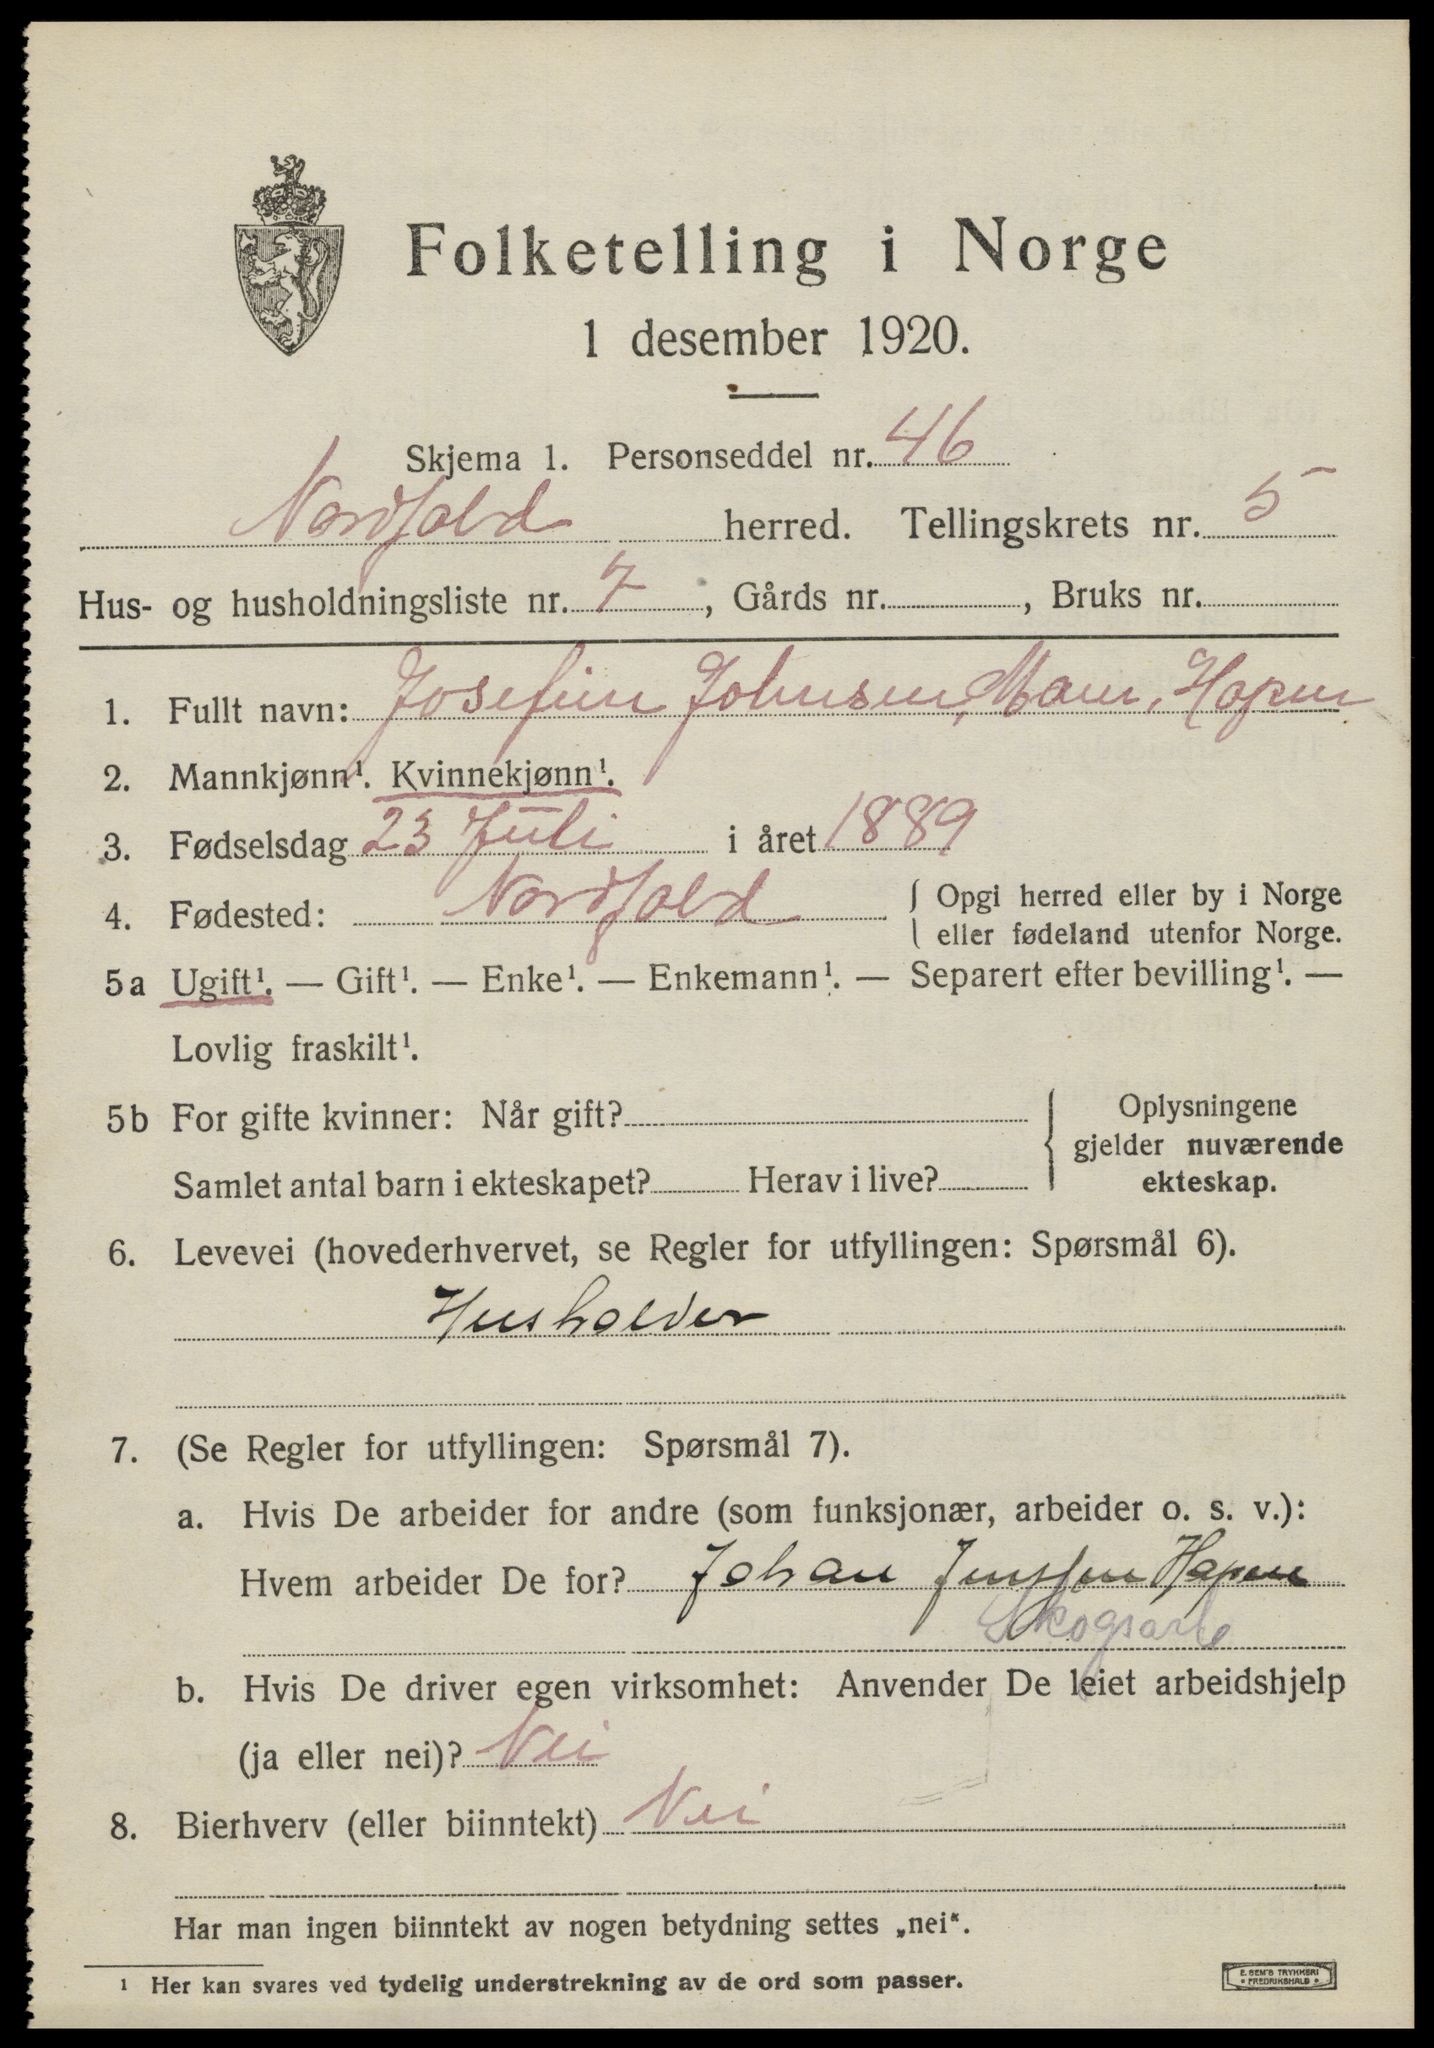 Folketelling i Norge
1 desember 1920.
Skjema 1. Personseddel nr. 46
Nordfold herred. Tellingskrets nr. 5
Hus- og husholdningsliste nr. 7, Gårds nr. , Bruks nr.
1. Fullt navn: Josefine Johnsen, Hopen
2. Mannkjønn¹. Kvinnekjønn¹.
3. Fødselsdag 23 Juli i året 1889
4. Fødested: Nordfold { Opgi herred eller by i Norge
eller fødeland utenfor Norge.
5a Ugift¹. — Gift¹. — Enke¹. — Enkemann¹. — Separert efter bevilling¹. —
Lovlig fraskilt¹.
5b For gifte kvinner: Når gift? Oplysningene
gjelder nuværende
Samlet antal barn i ekteskapet? Herav i live? ekteskap.
6. Levevei (hovederhvervet, se Regler for utfyllingen: Spørsmål 6).
Husholder
7. (Se Regler for utfyllingen: Spørsmål 7).
a. Hvis De arbeider for andre (som funksjonær, arbeider o. s. v.):
Hvem arbeider De for? Johan Jenssen Hopen
Skogsarb
b. Hvis De driver egen virksomhet: Anvender De leiet arbeidshjelp
(ja eller nei)? Nei
8. Bierhverv (eller biinntekt) Nei
Har man ingen biinntekt av nogen betydning settes „nei“.
¹ Her kan svares ved tydelig understrekning av de ord som passer.
E. SEM'S TRYKKERI
* FREDRIKSHALD *